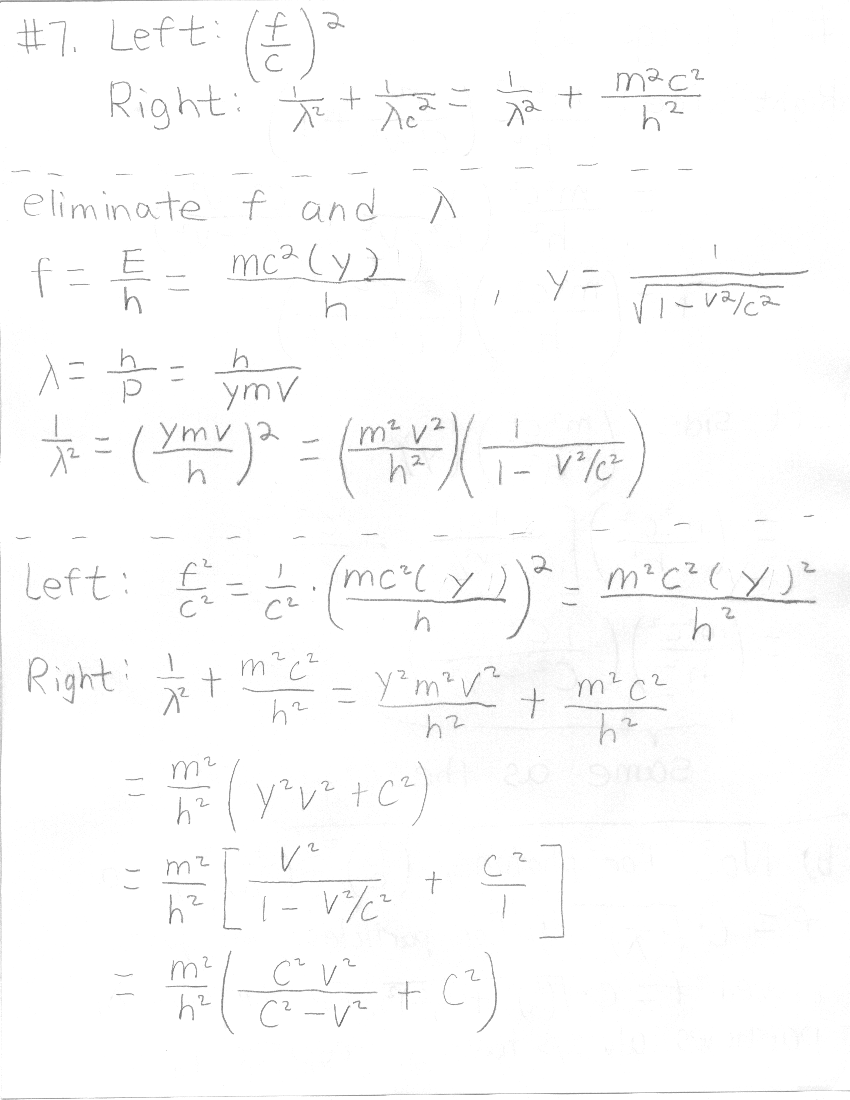 #7. Left: (f/c)²
Right: 1/λ² + 1/λc² = 1/λ² + m²c²/h²
eliminate f and λ
f = E/h = mc²(y)/h , y = 1/√(1 - v²/c²)
λ = h/p = h/ymv
1/λ² = (ymv/h)² = (m²v²/h²)(1/(1 - v²/c²))
Left: f²/c² = 1/c² · (mc²(y)/h)² = m²c²(y)²/h²
Right: 1/λ² + m²c²/h² = y²m²v²/h² + m²c²/h²
= m²/h² (y²v² + c²)
= m²/h² [v²/(1 - v²/c²) + c²/1]
= m²/h² (c²v²/(c² - v²) + c²)